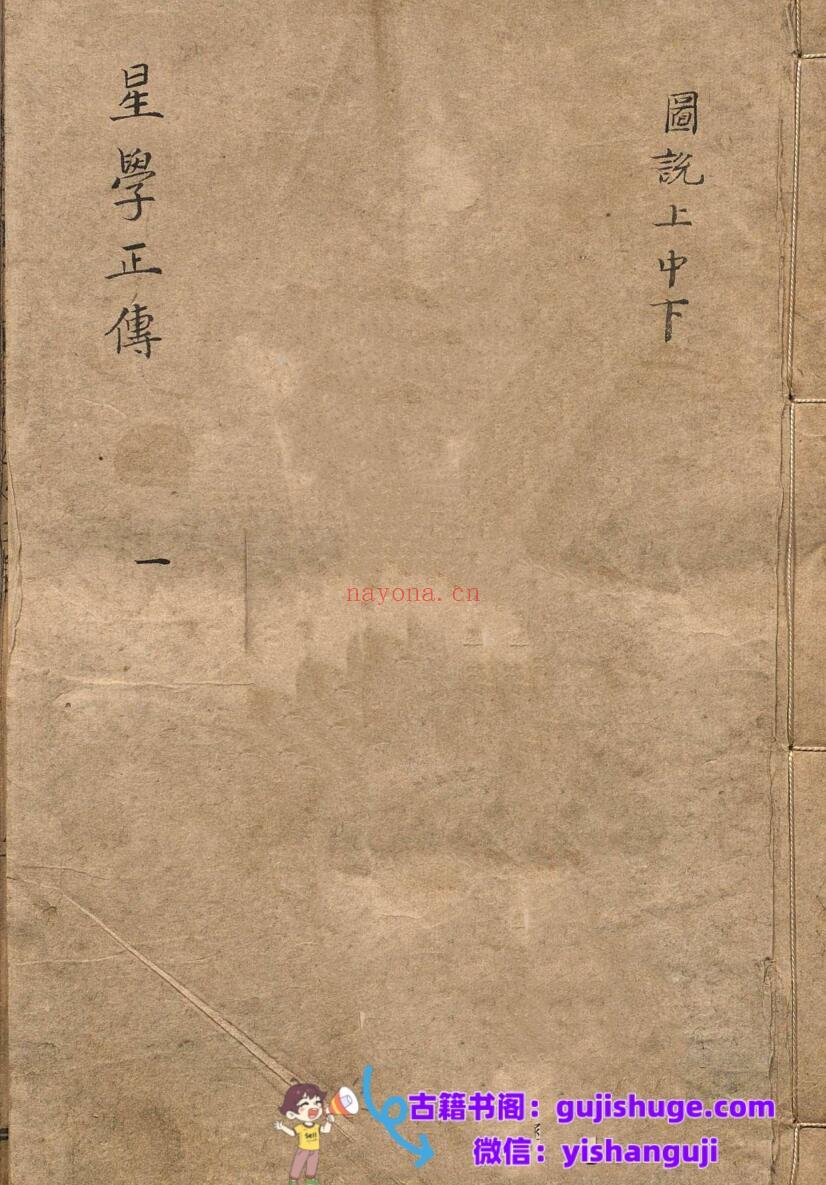 圖説上中下
星學正傳
一
nayona.cn
古籍书阁：gujishuge.com
微信：yishanguji